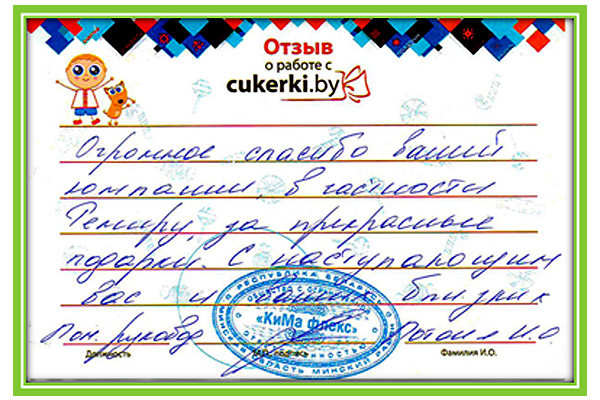 Отзыв
о работе с
cukerki.by
Огромное спасибо вашей
компании, в частности
за прекрасные
подарки. С наступающим
Вас и Ваших близких
Пом. руковод И.О
Должность М.П., подпись Фамилия И.О.
РЕСПУБЛИКА БЕЛАРУСЬ
ОБЩЕСТВО С ОГРАНИЧЕННОЙ
«КиМа флекс»
ОТВЕТСТВЕННОСТЬЮ
МИНСКАЯ ОБЛАСТЬ МИНСКИЙ